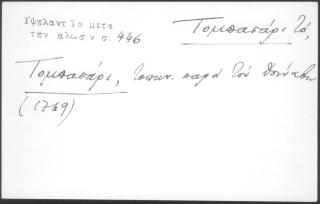 Υψηλαντ Τα μετα
την αλωσιν σ. 446
Τομπασάρι τό,
Τομπασάρι, τοπων. παρά τον Δούναβιν
(1769)